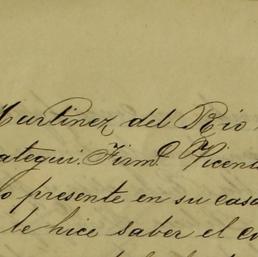 Martinez del Rio
ategui. Firmo. Vicen
o presente en su casa
le hice saber el co